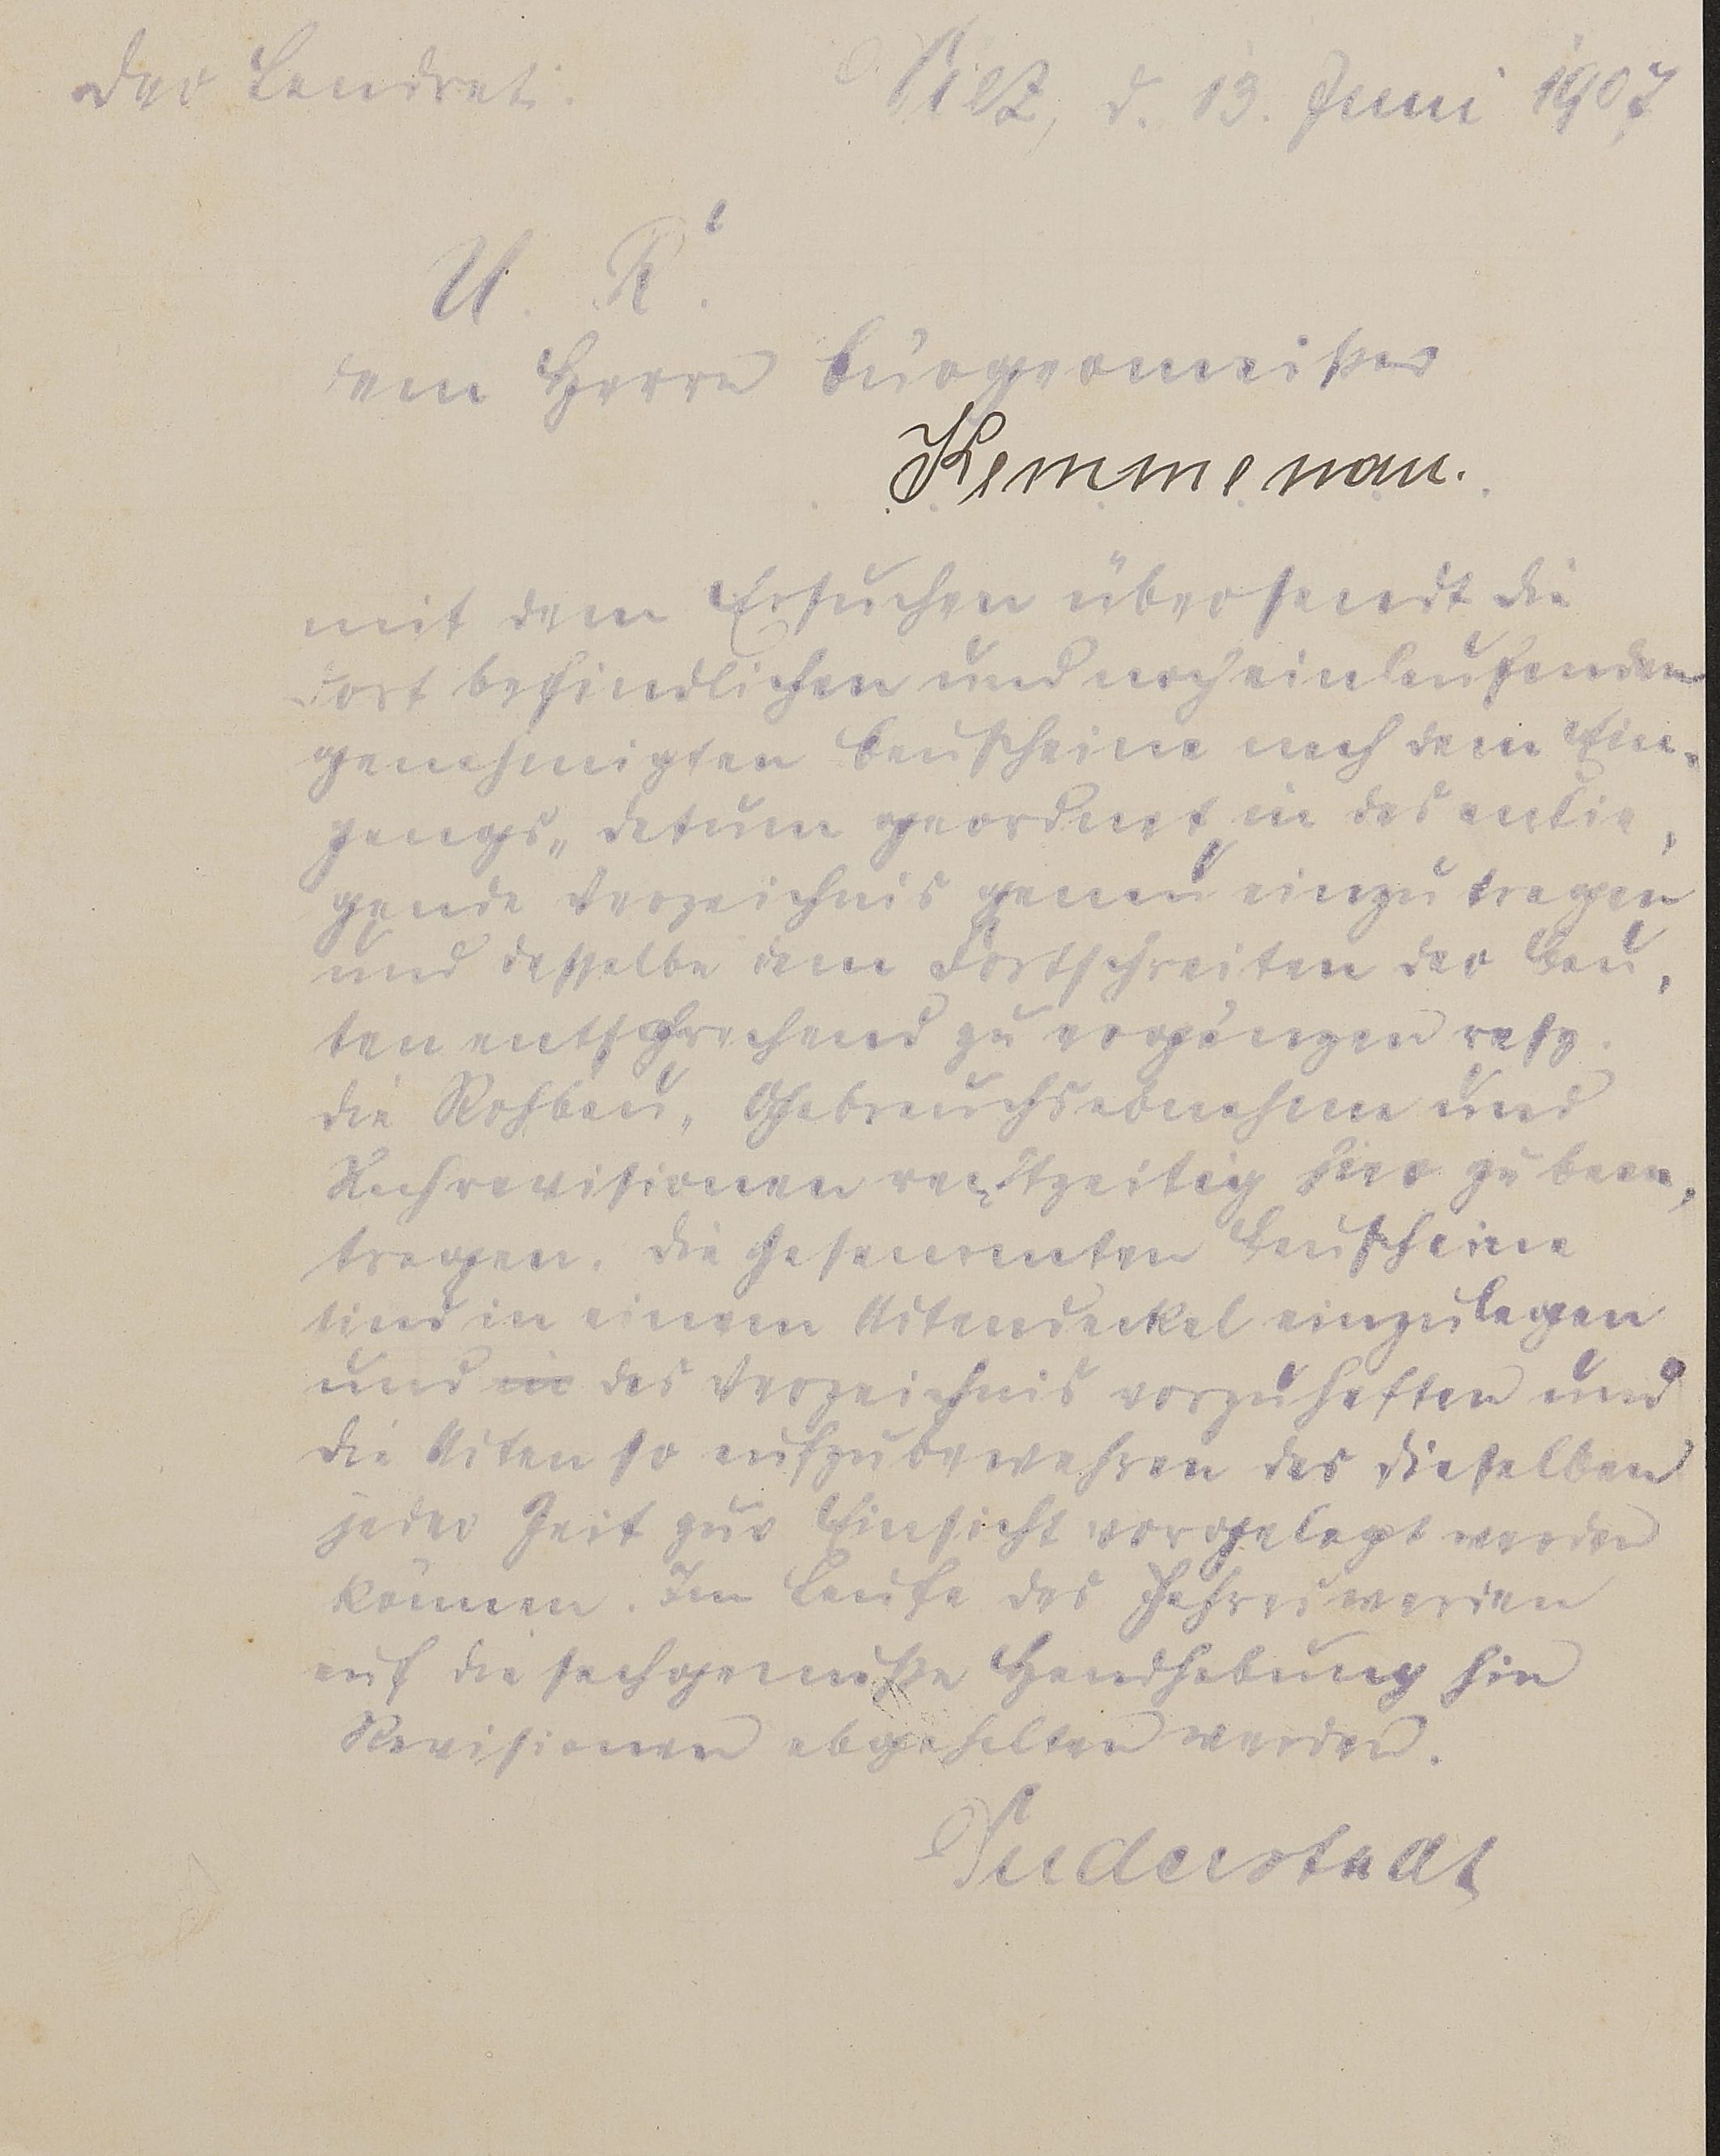 Der Landrat. Diez, d. 13. Juni 1907
U. R.
dem Herrn Bürgermeister
Kemmenau.
mit dem Ersuchen übersandt die
dort befindlichen und noch einlaufenden
genehmigten Bauscheine nach dem Ein-
gangs„ datum geordnet in das anlie,
gende Verzeichnis genau einzutragen
und dasselbe dem Fortschreiten der Bau,
ten entsprechend zu ergänzen resp.
die Rohbau, Gebrauchsabnahme und
Nachrevisionen rechtzeitig hier zu bean,
tragen. Die gesammten Bauscheine
sind in einem Aktendeckel einzulegen
und in das Verzeichnis vorzuheften und
die Akten so aufzubewahren das dieselben
jeder Zeit zur Einsicht vorgelegt werden
können. Im Laufe des Jahres werden
auf die sachgemäße Handhabung hin
Revisionen abgehalten werden.
Duderstadt